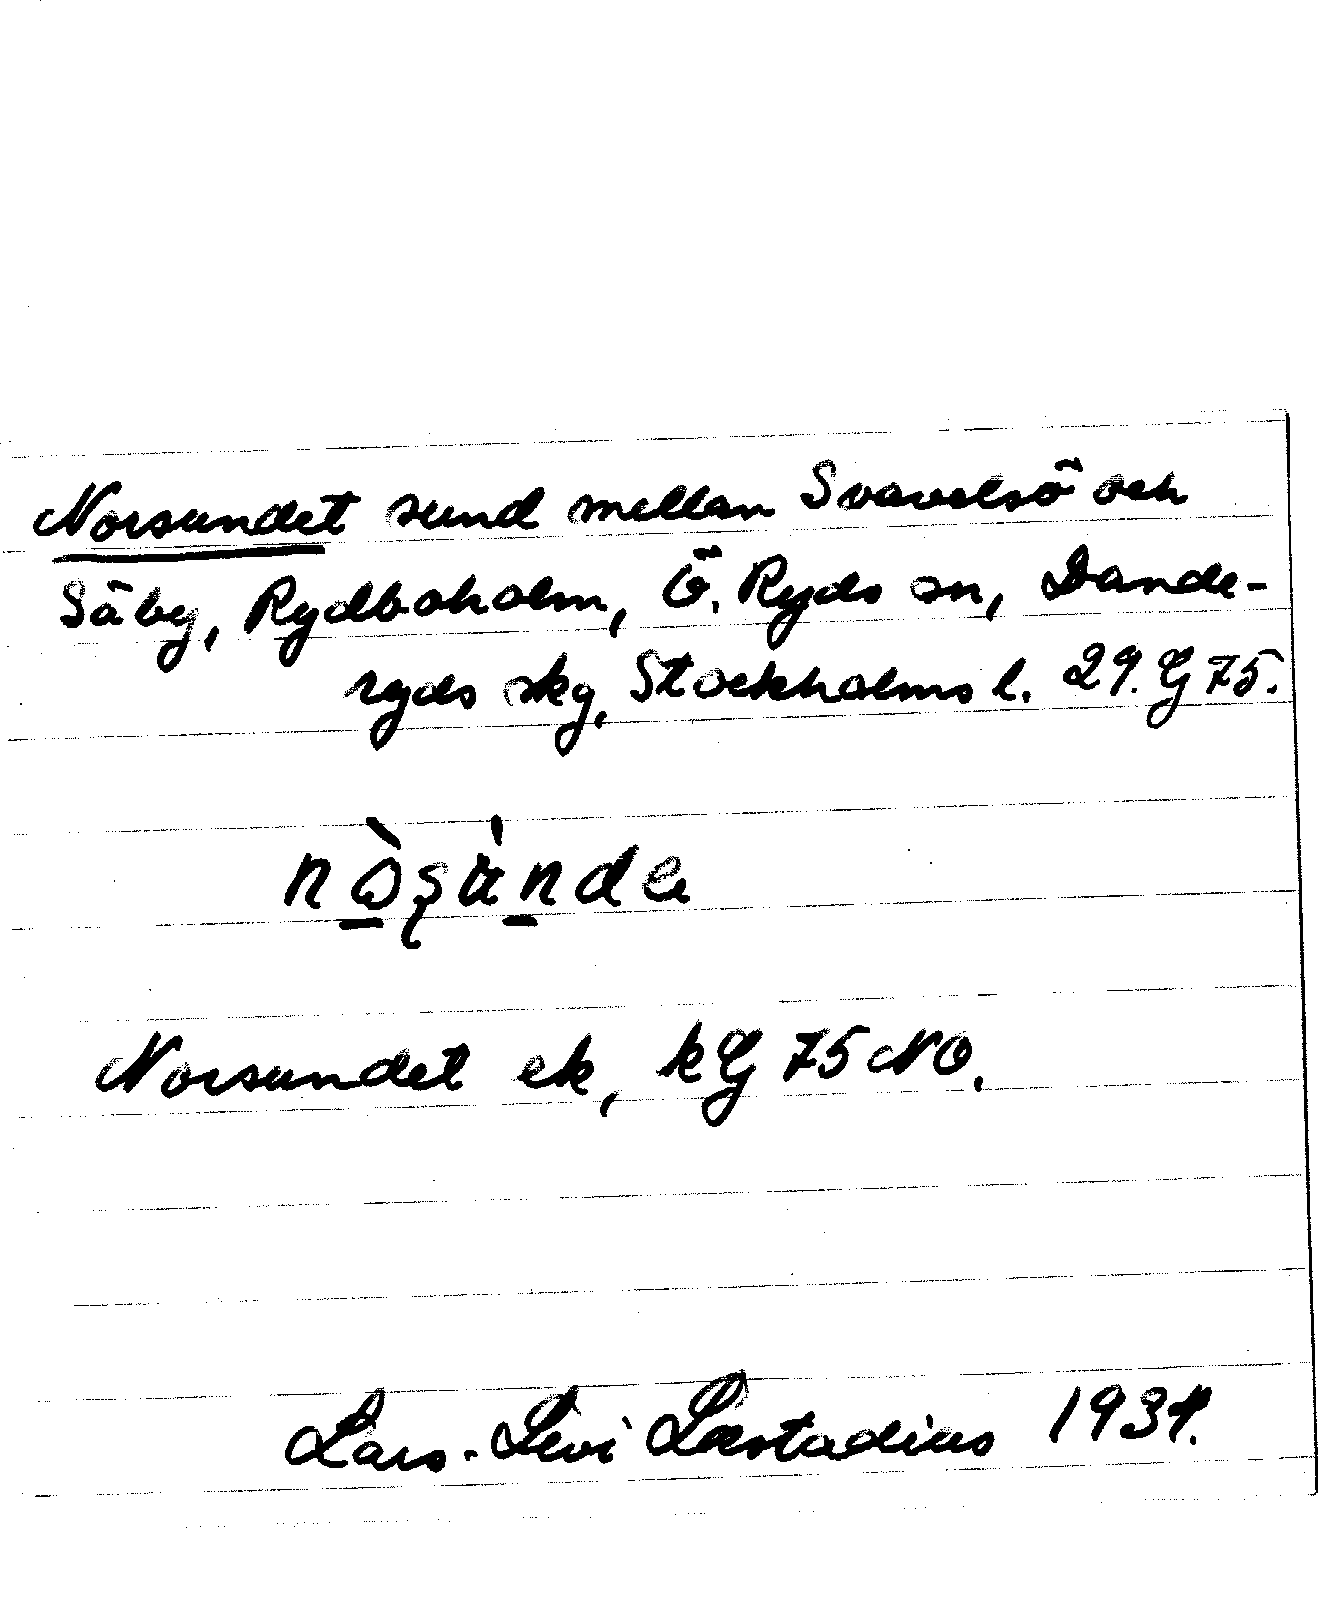 Norsundet sund mellan Svavelsö och
Säby, Rydboholm, Ö. Ryds sn, Dande-
ryds skg, Stockholms l. 29. G 75.
Norsundet ek, kG 75 NO.
Lars-Levi Læstadius 1934.